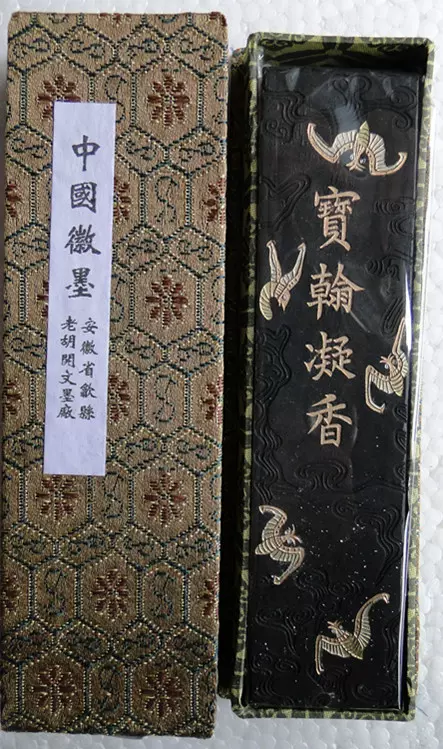 中國徽墨
安徽省歙縣
老胡開文墨廠
寶翰凝香